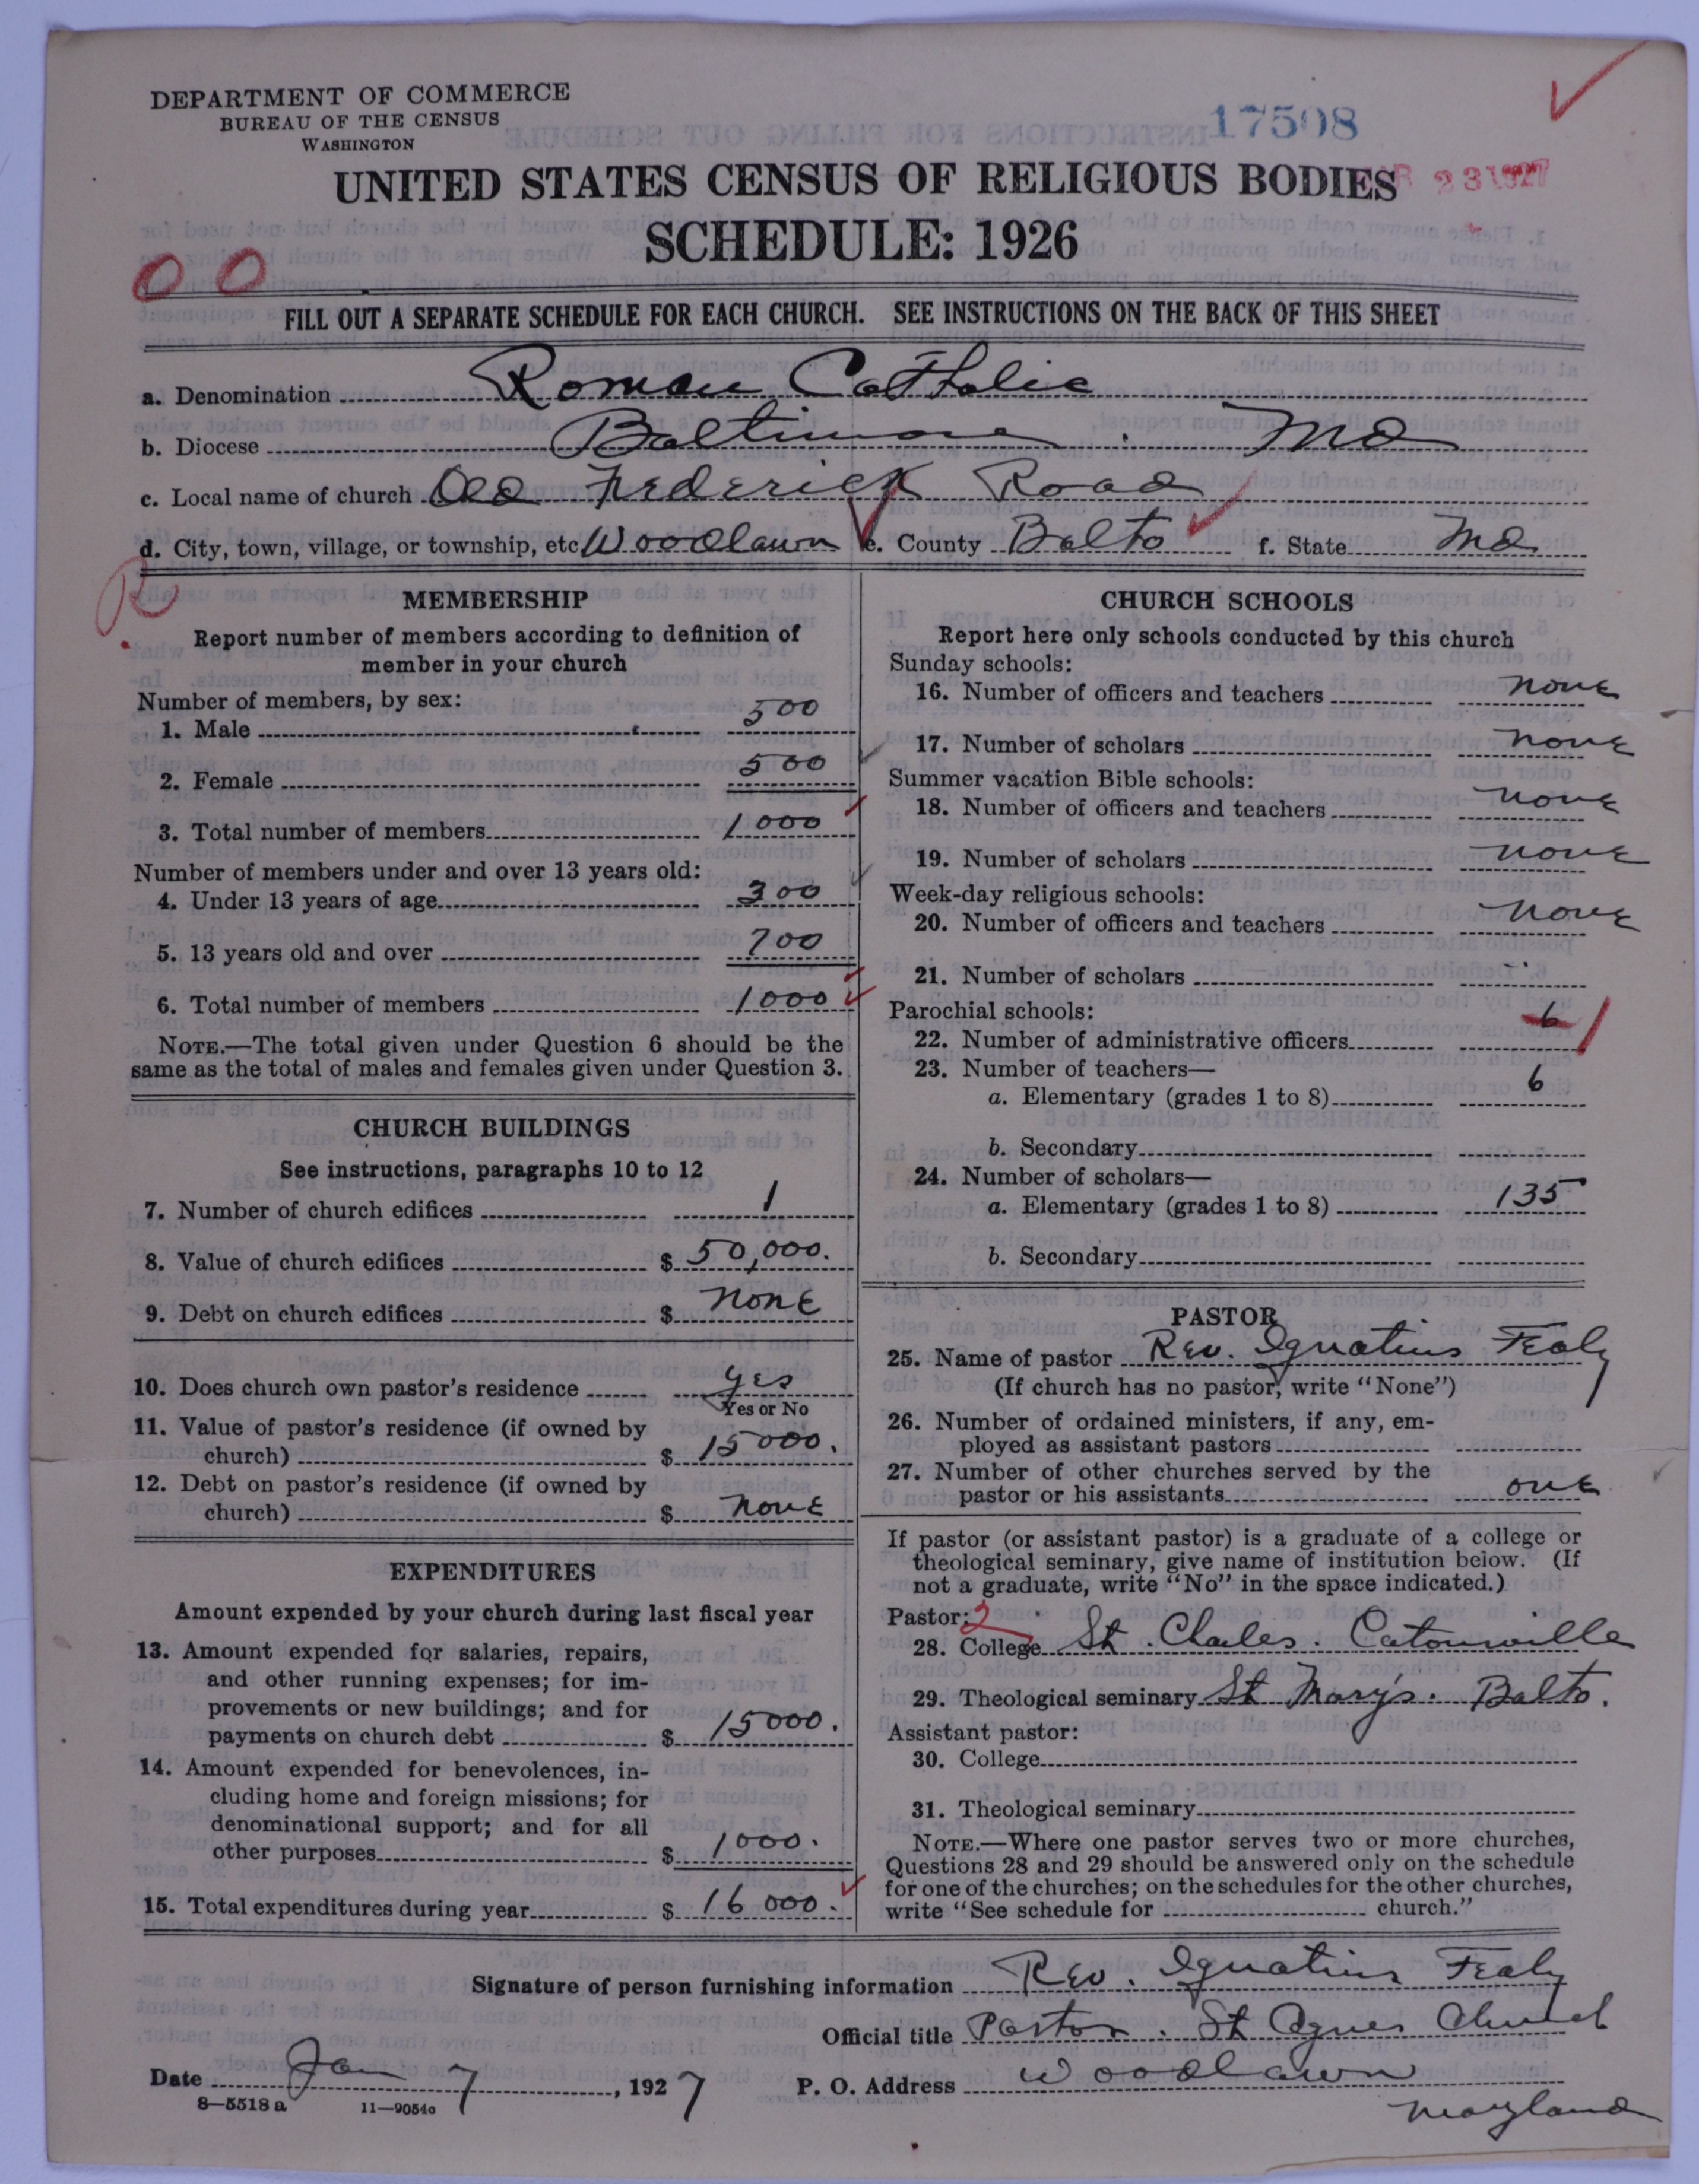 DEPARTMENT OF COMMERCE
BUREAU OF THE CENSUS
WASHINGTON
17508
UNITED STATES CENSUS OF RELIGIOUS BODIES
23 1927
SCHEDULE: 1926
00
FILL OUT A SEPARATE SCHEDULE FOR EACH CHURCH. SEE INSTRUCTIONS ON THE BACK OF THIS SHEET
a. Denomination Roman Catholic
b. Diocese Baltimore. Md
c. Local name of church Old Frederick Road
d. City, town, village, or township, etc Woodlawn e. County Balto f. State Md
R
MEMBERSHIP
Report number of members according to definition of
member in your church
Number of members, by sex:
1. Male 500
2. Female 500
3. Total number of members 1000
Number of members under and over 13 years old:
4. Under 13 years of age 300
5. 13 years old and over 700
6. Total number of members 1000
NOTE.—The total given under Question 6 should be the
same as the total of males and females given under Question 3.
CHURCH BUILDINGS
See instructions, paragraphs 10 to 12
7. Number of church edifices 1
8. Value of church edifices $ 50,000.
9. Debt on church edifices $ none
10. Does church own pastor's residence yes
Yes or No
11. Value of pastor's residence (if owned by
church) $ 15000.
12. Debt on pastor's residence (if owned by
church) $ none
EXPENDITURES
Amount expended by your church during last fiscal year
13. Amount expended for salaries, repairs,
and other running expenses; for im-
provements or new buildings; and for
payments on church debt $ 15000.
14. Amount expended for benevolences, in-
cluding home and foreign missions; for
denominational support; and for all
other purposes $ 1000.
15. Total expenditures during year $ 16000.
CHURCH SCHOOLS
Report here only schools conducted by this church
Sunday schools:
16. Number of officers and teachers none
17. Number of scholars none
Summer vacation Bible schools:
18. Number of officers and teachers none
19. Number of scholars none
Week-day religious schools:
20. Number of officers and teachers none
21. Number of scholars
Parochial schools:
22. Number of administrative officers 6 1
23. Number of teachers—
a. Elementary (grades 1 to 8) 6
b. Secondary
24. Number of scholars—
a. Elementary (grades 1 to 8) 135
b. Secondary
PASTOR
25. Name of pastor Rev. Ignatius Fealy
(If church has no pastor, write "None")
26. Number of ordained ministers, if any, em-
ployed as assistant pastors
27. Number of other churches served by the
pastor or his assistants one
If pastor (or assistant pastor) is a graduate of a college or
theological seminary, give name of institution below. (If
not a graduate, write "No" in the space indicated.)
Pastor: 2
28. College St. Charles. Catonsville
29. Theological seminary St Mary's. Balto.
Assistant pastor:
30. College
31. Theological seminary
NOTE.—Where one pastor serves two or more churches,
Questions 28 and 29 should be answered only on the schedule
for one of the churches; on the schedules for the other churches,
write "See schedule for church."
Signature of person furnishing information Rev. Ignatius Fealy
Official title Pastor. St Agnes Church
Date Jan 7, 1927 P. O. Address Woodlawn
8—5518 a 11—9054c
Maryland